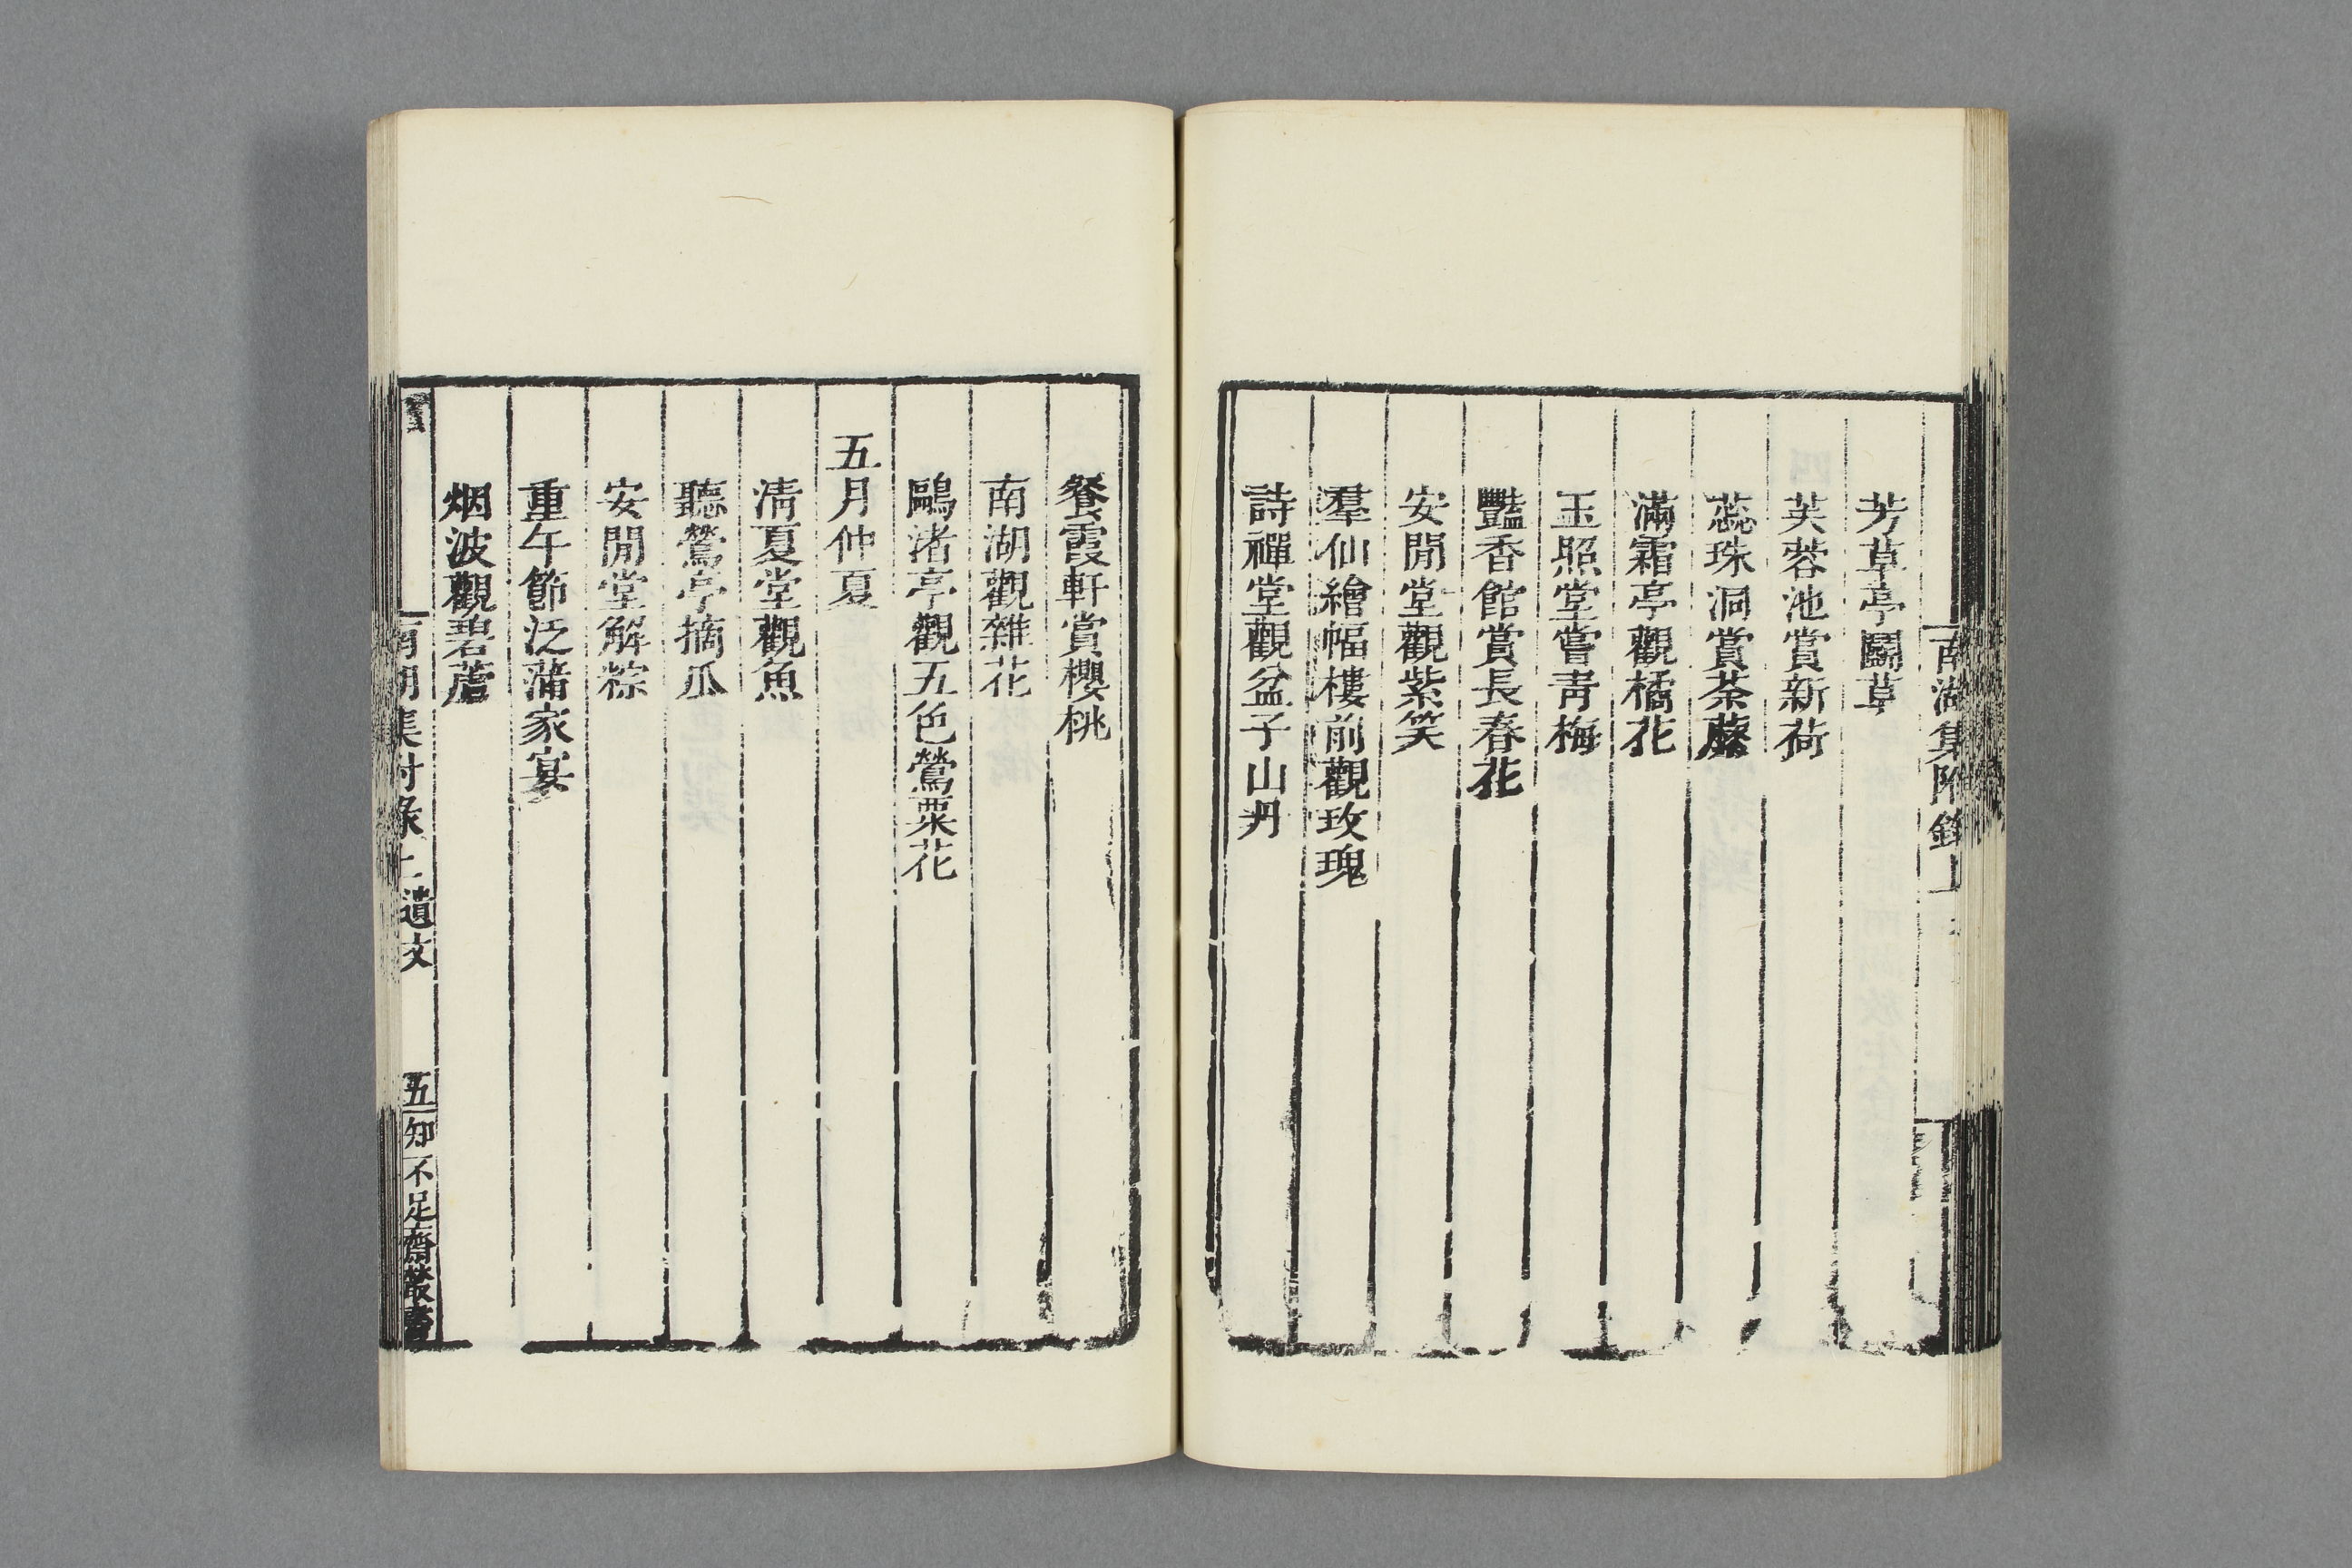 南湖集附錄上
芳草亭鬬草
芙蓉池賞新荷
蕊珠洞賞荼䕷
滿霜亭觀橘花
玉照堂嘗青梅
豔香館賞長春花
安閒堂觀紫笑
羣仙繪幅樓前觀玫瑰
詩禪堂觀盆子山丹
餐霞軒賞櫻桃
南湖觀雜花
鷗渚亭觀五色鶯粟花
五月仲夏
清夏堂觀魚
聽鶯亭摘瓜
安閒堂解粽
重午節泛蒲家宴
烟波觀碧蘆
南湖集附錄上遺文
五
知不足齋叢書